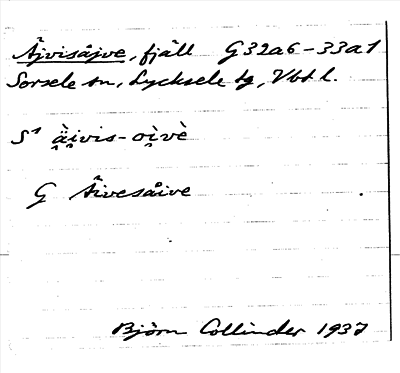 Äjvisåjve, fjäll G32a6-33a1
Sorsele sn, Lycksele tg, Vbt l.
S¹ ä̀i̯vis-oi̯vè
G Äivesåive
Björn Collinder 1937